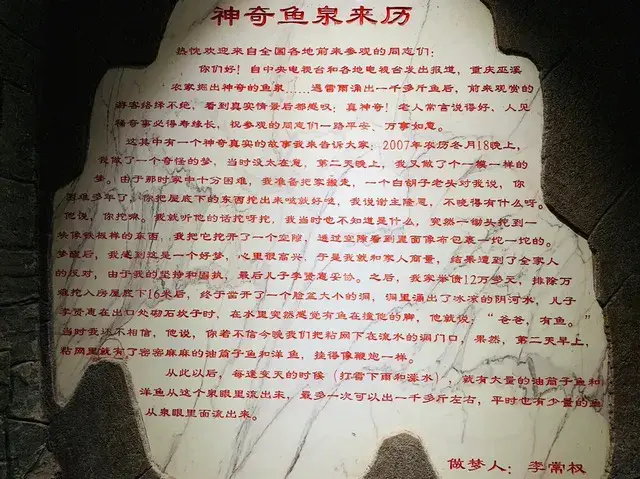 神奇鱼泉来历
热忱欢迎来自全国各地前来参观的同志们：
你们好！自中央电视台和各地电视台发出报道，重庆巫溪
农家挖出神奇的鱼泉……遇雷雨涌出一千多斤鱼后，前来观赏的
游客络绎不绝，看到真实情景后都感叹：真神奇！老人常言说得好，人见
稀奇事必得寿缘长，祝参观的同志们一路平安、万事如意。
这其中有一个神奇真实的故事我来告诉大家：2007年农历冬月18晚上，
我做了一个奇怪的梦，当时没太在意，第二天晚上，我又做了个一模一样的
梦。由于那时家中十分困难，我准备把家搬走，一个白胡子老头对我说，你
困难多年了，你把屋底下的东西挖出来哒就好哒，我说谢主隆恩，不晓得有什么呀。
他说，你挖嘛。我就听他的话挖呀挖，我当时也不知道是什么，突然一锄头挖到一
块像铁板样的东西，我把它挖开了一个空隙，通过空隙看到里面像布包裹一坨一坨的。
梦醒后，我感到这是一个好梦，心里很高兴，于是我就和家人商量，结果遭到了全家人
的反对，由于我的坚持和固执，最后儿子李贤惠妥协。之后，我家举债12万多元，排除万
难挖入房屋底下16米后，终于凿开了一个脸盆大小的洞，洞里涌出了冰凉的阴河水，儿子
李贤惠在出口处砌石坎子时，在水里突然感觉有鱼在撞他的脚，他就说，“爸爸，有鱼。”
当时我还不相信，他说，你若不信今晚我们把粘网下在流水的洞门口，果然，第二天早上，
粘网里就有了密密麻麻的油筒子鱼和洋鱼，挂得像鞭炮一样。
从此以后，每逢变天的时候（打雷下雨和涨水），就有大量的油筒子鱼和
洋鱼从这个泉眼里流出来，最多一次可以出一千多斤左右，平时也有少量的鱼
从泉眼里面流出来。
做梦人：李常权